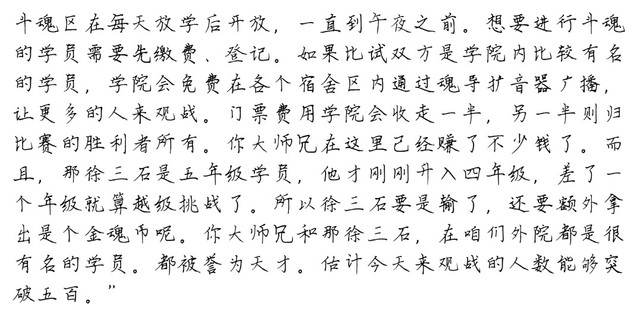 斗魂区在每天放学后开放，一直到午夜之前。想要进行斗魂
的学员需要先缴费、登记。如果比试双方是学院内比较有名
的学员，学院会免费在各个宿舍区内通过魂导扩音器广播，
让更多的人来观战。门票费用学院会收走一半，另一半则归
比赛的胜利者所有。你大师兄在这里已经赚了不少钱了。而
且，那徐三石是五年级学员，他才刚刚升入四年级，差了一
个年级就算越级挑战了。所以徐三石要是输了，还要额外拿
出是个金魂币呢。你大师兄和那徐三石，在咱们外院都是很
有名的学员。都被誉为天才。估计今天来观战的人数能够突
破五百。”